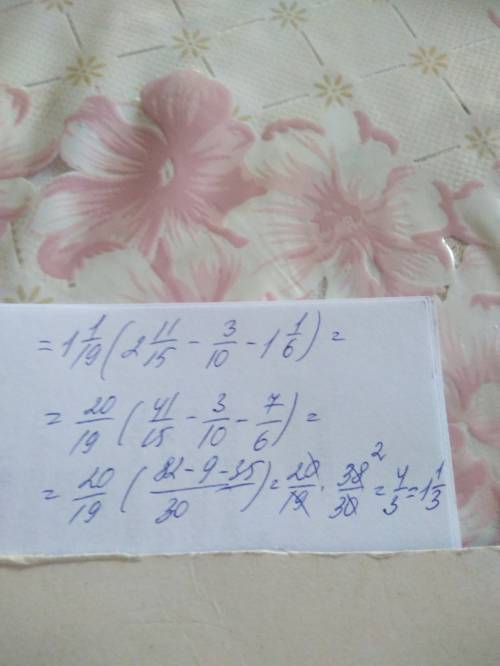 = 1 1/19 (2 11/15 - 3/10 - 1 1/6) =
= 20/19 (41/15 - 3/10 - 7/6) =
= 20/19 ((82-9-35)/30) = 20/19 · 38/30 2 = 4/3 = 1 1/3